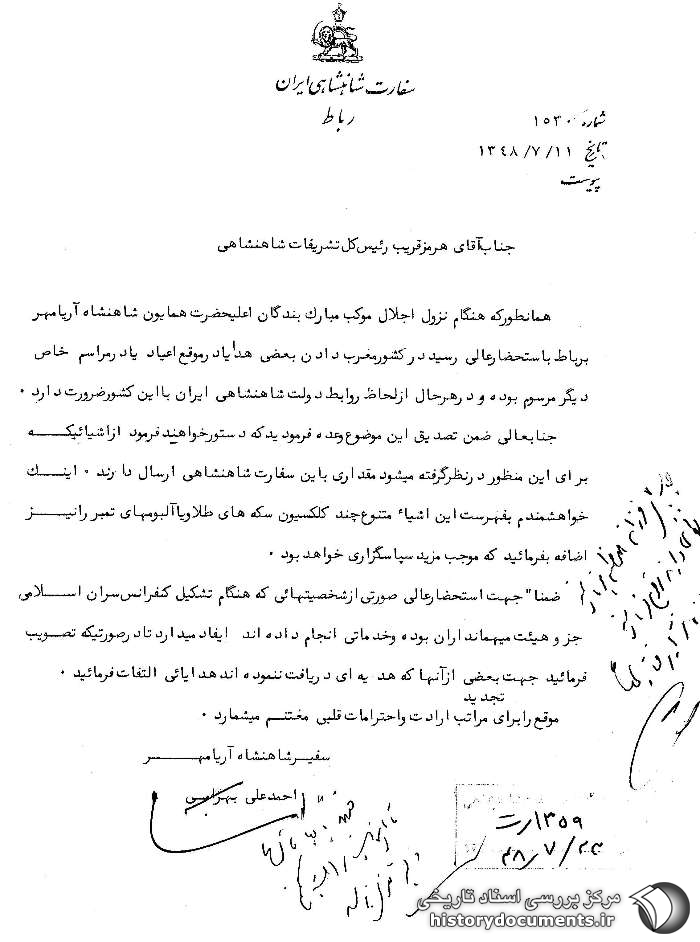 سفارت شاهنشاهی ایران
رباط
شماره ۱۵۳۰
تاریخ ۱۳۴۸/۷/۱۱
پیوست
جناب آقای هرمز قریب رئیس کل تشریفات شاهنشاهی
همانطور که هنگام نزول اجلال موکب مبارک بندگان اعلیحضرت همایون شاهنشاه آریامهر
برباط باستحضار عالی رسید در کشور مغرب دادن بعضی هدایا در موقع اعیاد یا در مراسم خاص
دیگر مرسوم بوده و در هر حال از لحاظ روابط دولت شاهنشاهی ایران با این کشور ضرورت دارد ۰
جنابعالی ضمن تصدیق این موضوع وعده فرمودید که دستور خواهند فرمود از اشیائیکه
برای این منظور در نظر گرفته میشود مقداری باین سفارت شاهنشاهی ارسال دارند ۰ اینك
خواهشمندم بفهرست این اشیاء متنوع چند کلکسیون سکه های طلا و یا آلبومهای تمبر را نیز
اضافه بفرمائید که موجب مزید سپاسگزاری خواهد بود ۰
ضمنا" جهت استحضار عالی صورتی از شخصیتهائی که هنگام تشکیل کنفرانس سران اسلامی
جزو هیئت میهمانداران بوده و خدماتی انجام داده اند ایفاد میدارد تا در صورتیکه تصویب
فرمائید جهت بعضی از آنها که هدیه ای دریافت ننموده اند هدایائی التفات فرمائید ۰
تجدید
موقع را برای مراتب ارادت و احترامات قلبی مغتنم میشمارد ۰
سفیر شاهنشاه آریامهر
احمد علی بهرامی
۱۳۵۹ارت
۴۸/۷/۲۳
مرکز بررسی اسناد تاریخی
historydocuments.ir